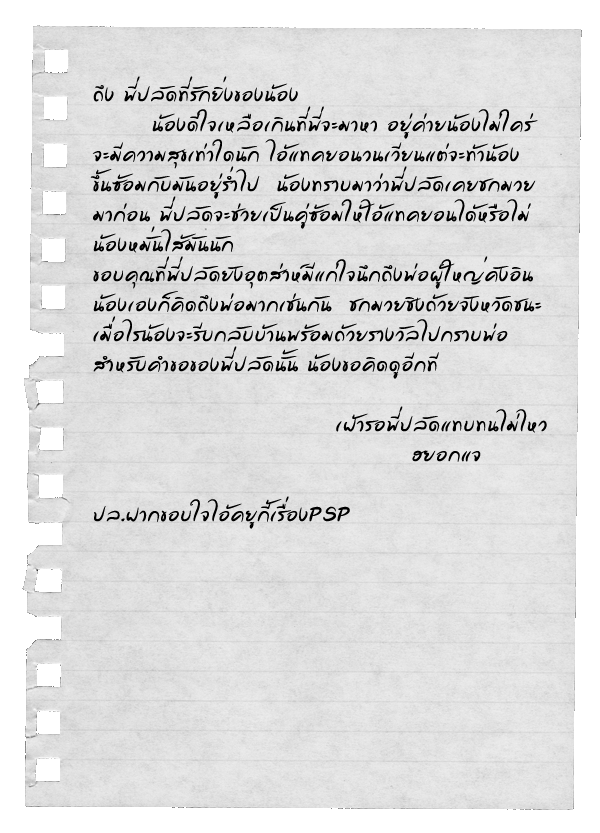 ถึง พี่ปลัดที่รักยิ่งของน้อง
น้องดีใจเหลือเกินที่พี่จะมาหา อยู่ค่ายน้องไม่ใคร่
จะมีความสุขเท่าใดนัก ไอ้แทคยอนวนเวียนแต่จะทำน้อง
ขึ้นซ้อมกับมันอยู่ร่ำไป น้องทราบมาว่าพี่ปลัดเคยชกมวย
มาก่อน พี่ปลัดจะช่วยเป็นคู่ซ้อมให้ไอ้แทคยอนได้หรือไม่
น้องหมั่นไส้มันนัก
ขอบคุณที่พี่ปลัดยังอุตส่าห์มีแก่ใจนึกถึงพ่อผู้ใหญ่คังอิน
น้องเองก็คิดถึงพ่อมากเช่นกัน ชกมวยชิงถ้วยจังหวัดชนะ
เมื่อไรน้องจะรีบกลับบ้านพร้อมถ้วยรางวัลไปกราบพ่อ
สำหรับคำขอของพี่ปลัดนั้น น้องขอคิดดูอีกที
เฝ้ารอพี่ปลัดแทบทนไม่ไหว
ฮยอกแจ
ปล.ฝากขอบใจไอ้คยูกี้เรื่องPSP